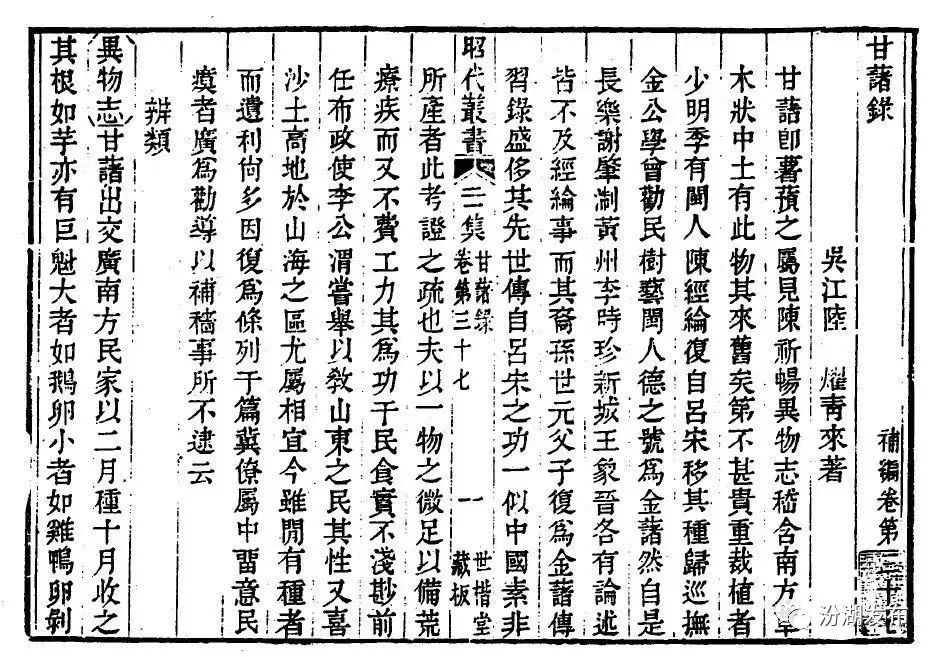 甘藷錄
補編卷第三十七
吳江陸 燿青來著
甘藷卽薯蕷之屬見陳祈暢異物志嵇含南方草
木狀中土有此物其來舊矣第不甚貴重裁植者
少明季有閩人陳經綸復自呂宋移其種歸巡撫
金公學曾勸民樹藝閩人德之號爲金藷然自是
長樂謝肇淛黃州李時珍新城王象晉各有論述
皆不及經綸事而其裔孫世元父子復爲金藷傳
習錄盛侈其先世傳自呂宋之功一似中國素非
昭代叢書 二集 甘藷錄 卷第三十七 一 世楷堂 藏板
所產者此考證之疏也夫以一物之微足以備荒
療疾而又不費工力其爲功于民食實不淺尠前
任布政使李公渭嘗舉以敎山東之民其性又喜
沙土高地於山海之區尤屬相宜今雖閒有種者
而遺利尙多因復爲條列于篇冀僚屬中畱意民
瘼者廣爲勸導以補穡事所不逮云
辨類
異物志甘藷出交廣南方民家以二月種十月收之
其根如芋亦有巨魁大者如鵝卵小者如雞鴨卵剝
汾湖发布